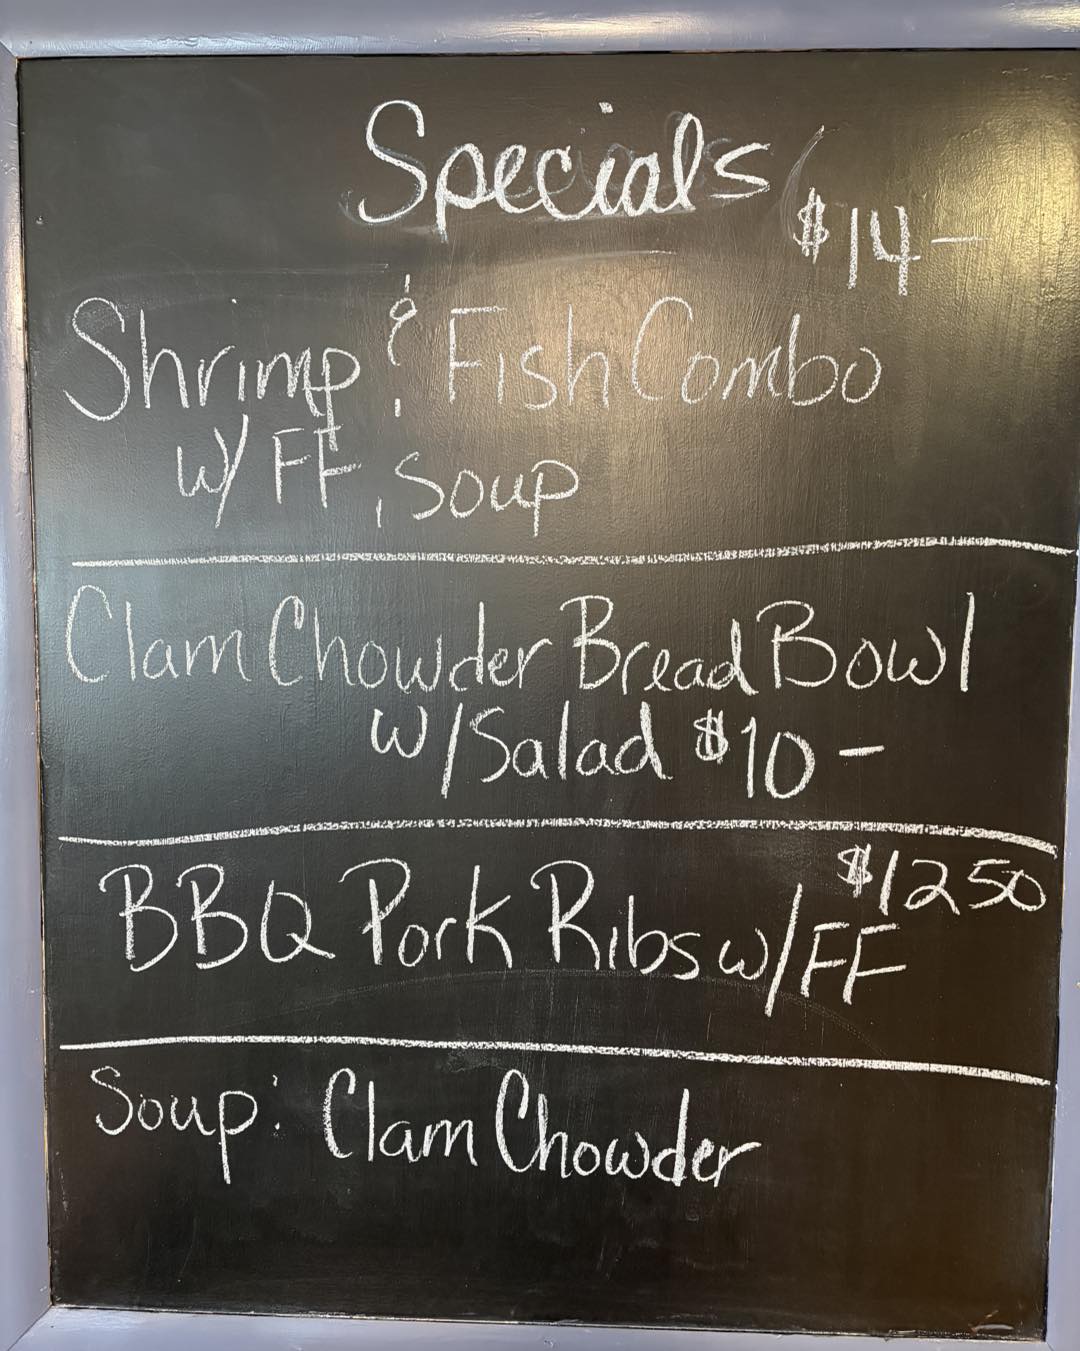 Specials
$14-
Shrimp & Fish Combo
w/ FF, soup
Clam Chowder Bread Bowl
w/Salad $10-
$1250
BBQ Pork Ribs w/FF
Soup: Clam Chowder